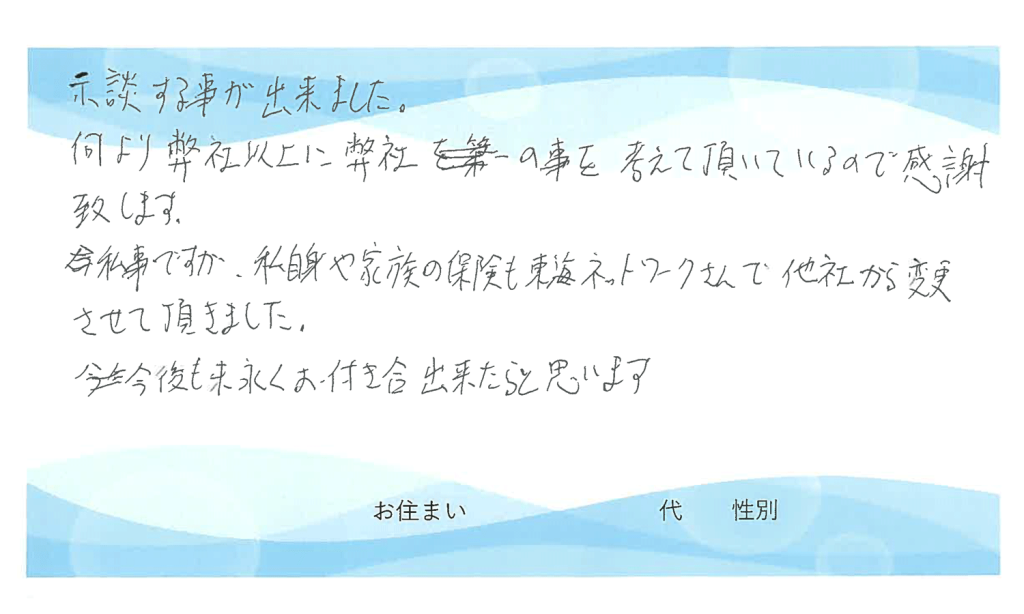 示談する事が出来ました。
何より弊社以上に弊社の事を考えて頂いているので感謝
致します。
私事ですが、私自身や家族の保険も東海ネットワークさんで他社から変更
させて頂きました。
今後も末永くお付き合出来たらと思います
お住まい 代 性別